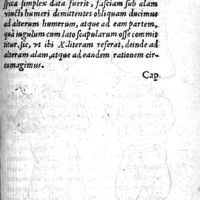 ssica simplex data fuerit, fasciam sub alam
vincti humeri demittentes obliquam ducimus
ad alterum humerum, atque ad eam partem,
qua iugulum cum lato scapularum osse commit
titur, sic, vt ibi X literam referat, deinde ad
alteram alam, atque ad eandem rationem cir-
cumagimus.
Cap.